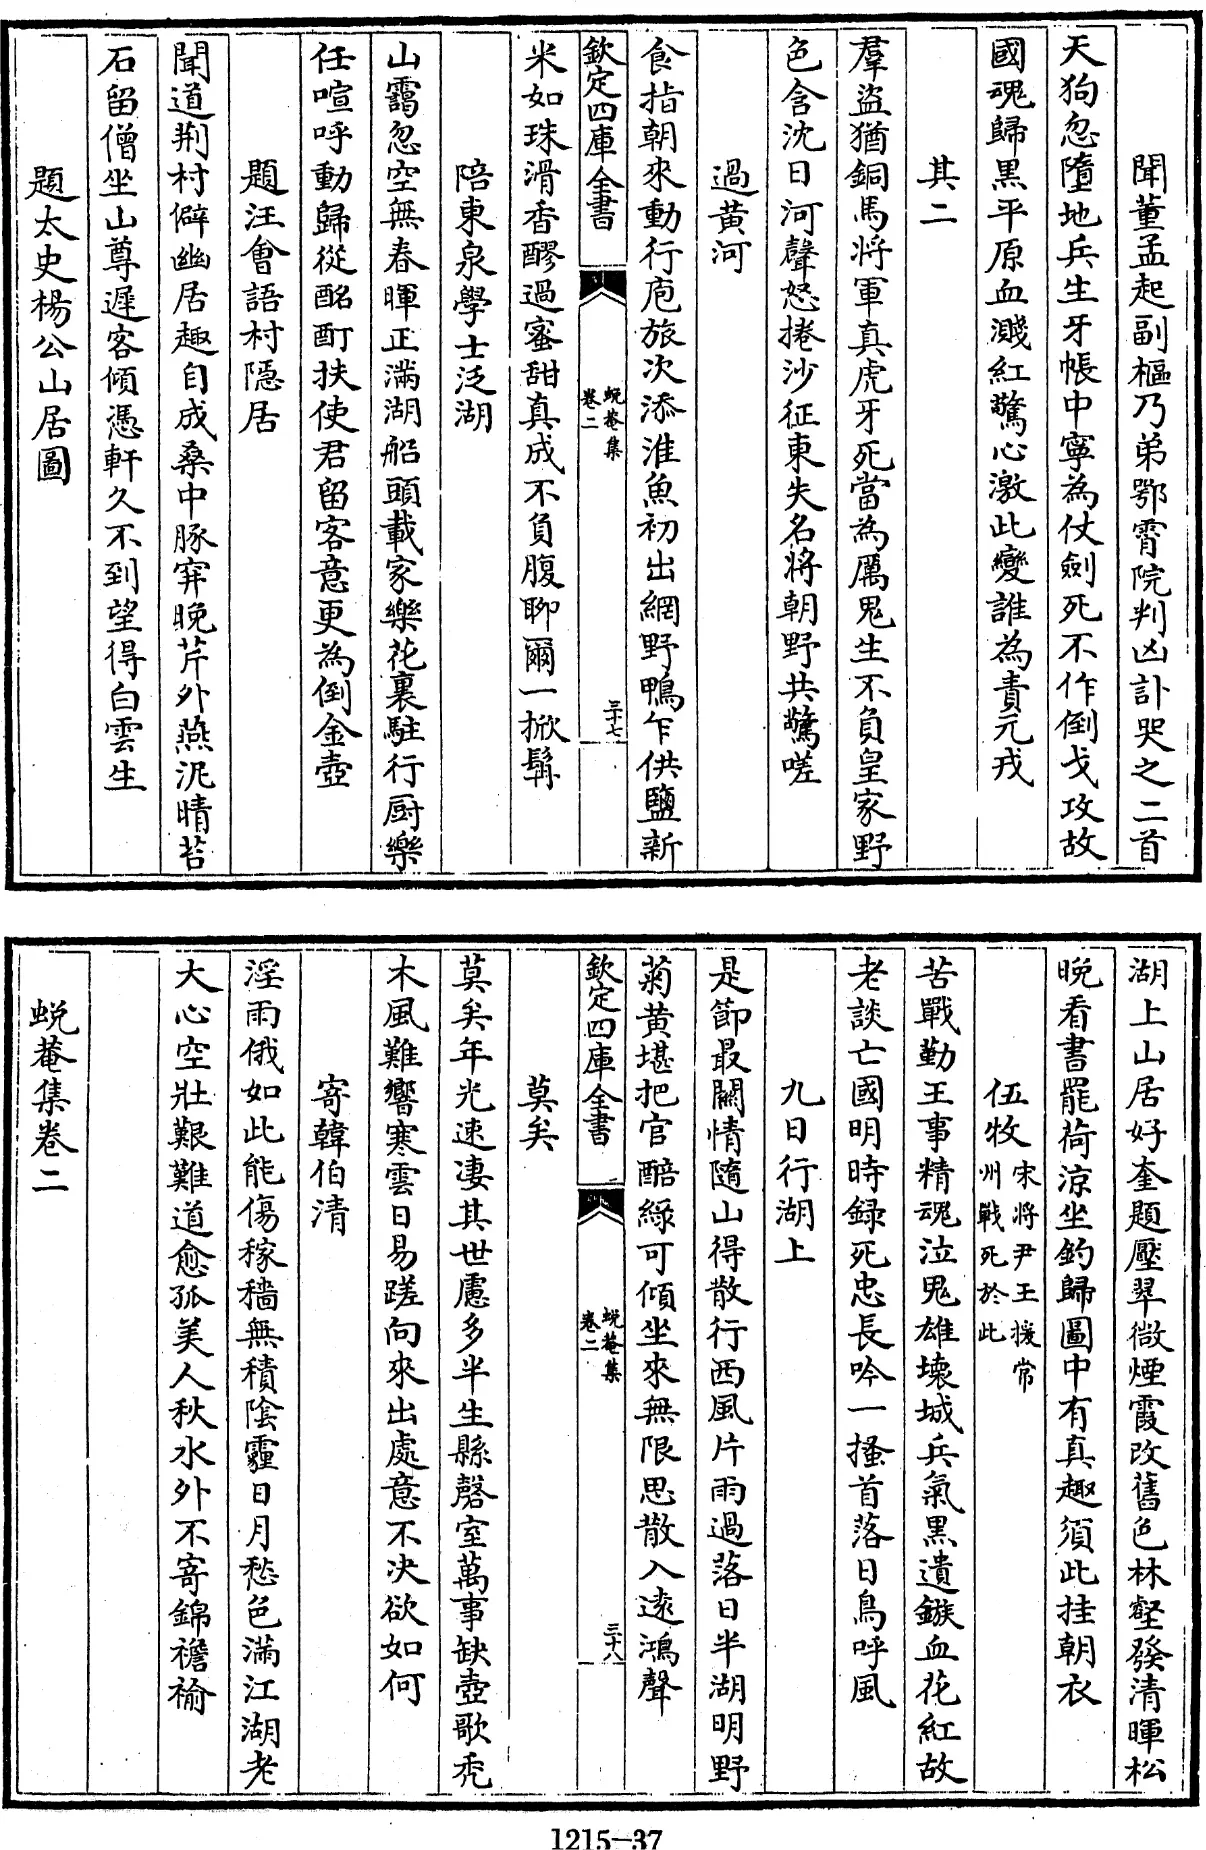 聞董孟起副樞乃弟鄂霄院判凶訃哭之二首
天狗忽墮地兵生牙帳中寧為仗劍死不作倒戈攻故
國魂歸黒平原血濺紅驚心激此變誰為責元戎
其二
羣盜猶銅馬將軍真虎牙死當為厲鬼生不負皇家野
色含沈日河聲怒捲沙征東失名將朝野共驚嗟
過黄河
食指朝來動行庖旅次添淮魚初出網野鴨乍供鹽新
欽定四庫全書
蛻菴集
卷二
三十七
米如珠滑香醪過蜜甜真成不負腹聊爾一掀髯
陪東泉學士泛湖
山靄忽空無春暉正滿湖船頭載家樂花裏駐行厨樂
任喧呼動歸從酩酊扶使君留客意更為倒金壺
題汪會語村隱居
聞道荆村僻幽居趣自成桑中豚穽晩芹外燕泥晴苔
石留僧坐山尊遲客傾憑軒久不到望得白雲生
題太史楊公山居圖
湖上山居好奎題壓翠微煙霞改舊色林壑發清暉松
晩看書罷荷涼坐釣歸圖中有真趣須此挂朝衣
伍牧宋將尹玉援常
州戰死於此
苦戰勤王事精魂泣鬼雄壊城兵氣黒遺鏃血花紅故
老談亡國明時録死忠長吟一搔首落日鳥呼風
九日行湖上
是節最關情隨山得散行西風片雨過落日半湖明野
菊黄堪把官醅緑可傾坐來無限思散入遠鴻聲
欽定四庫全書
蛻菴集
卷二
三十八
莫矣
莫矣年光速凄其世慮多半生縣磬室萬事缺壺歌秃
木風難響寒雲日易蹉向來出處意不决欲如何
寄韓伯清
淫雨俄如此能傷稼穡無積陰霾日月愁色滿江湖老
大心空壯艱難道愈孤美人秋水外不寄錦襜褕
蛻菴集卷二
1215-37